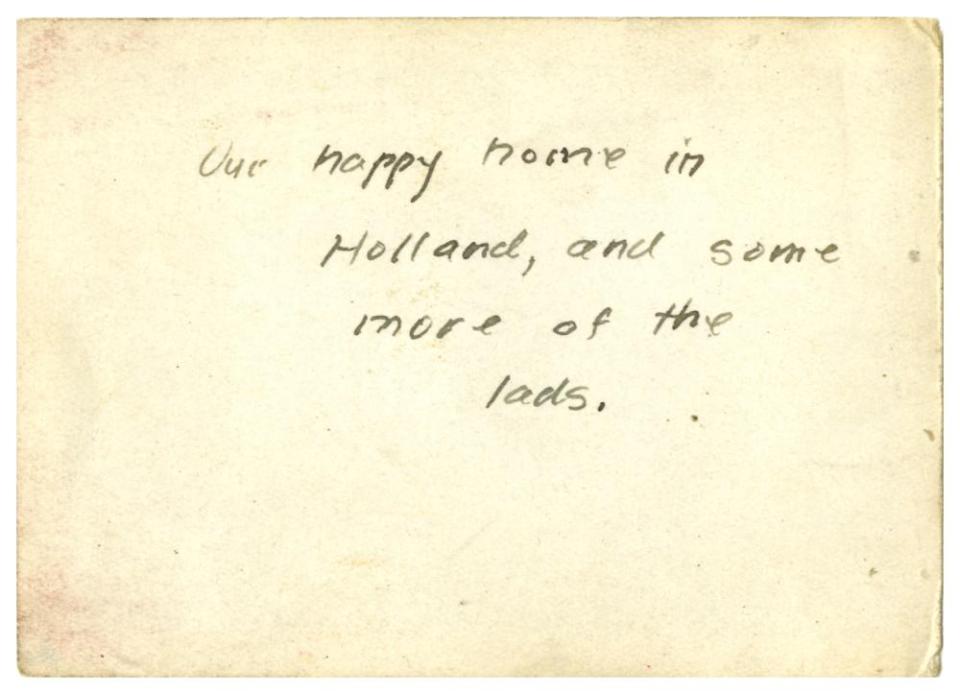 Our happy home in
Holland, and some
more of the
lads.